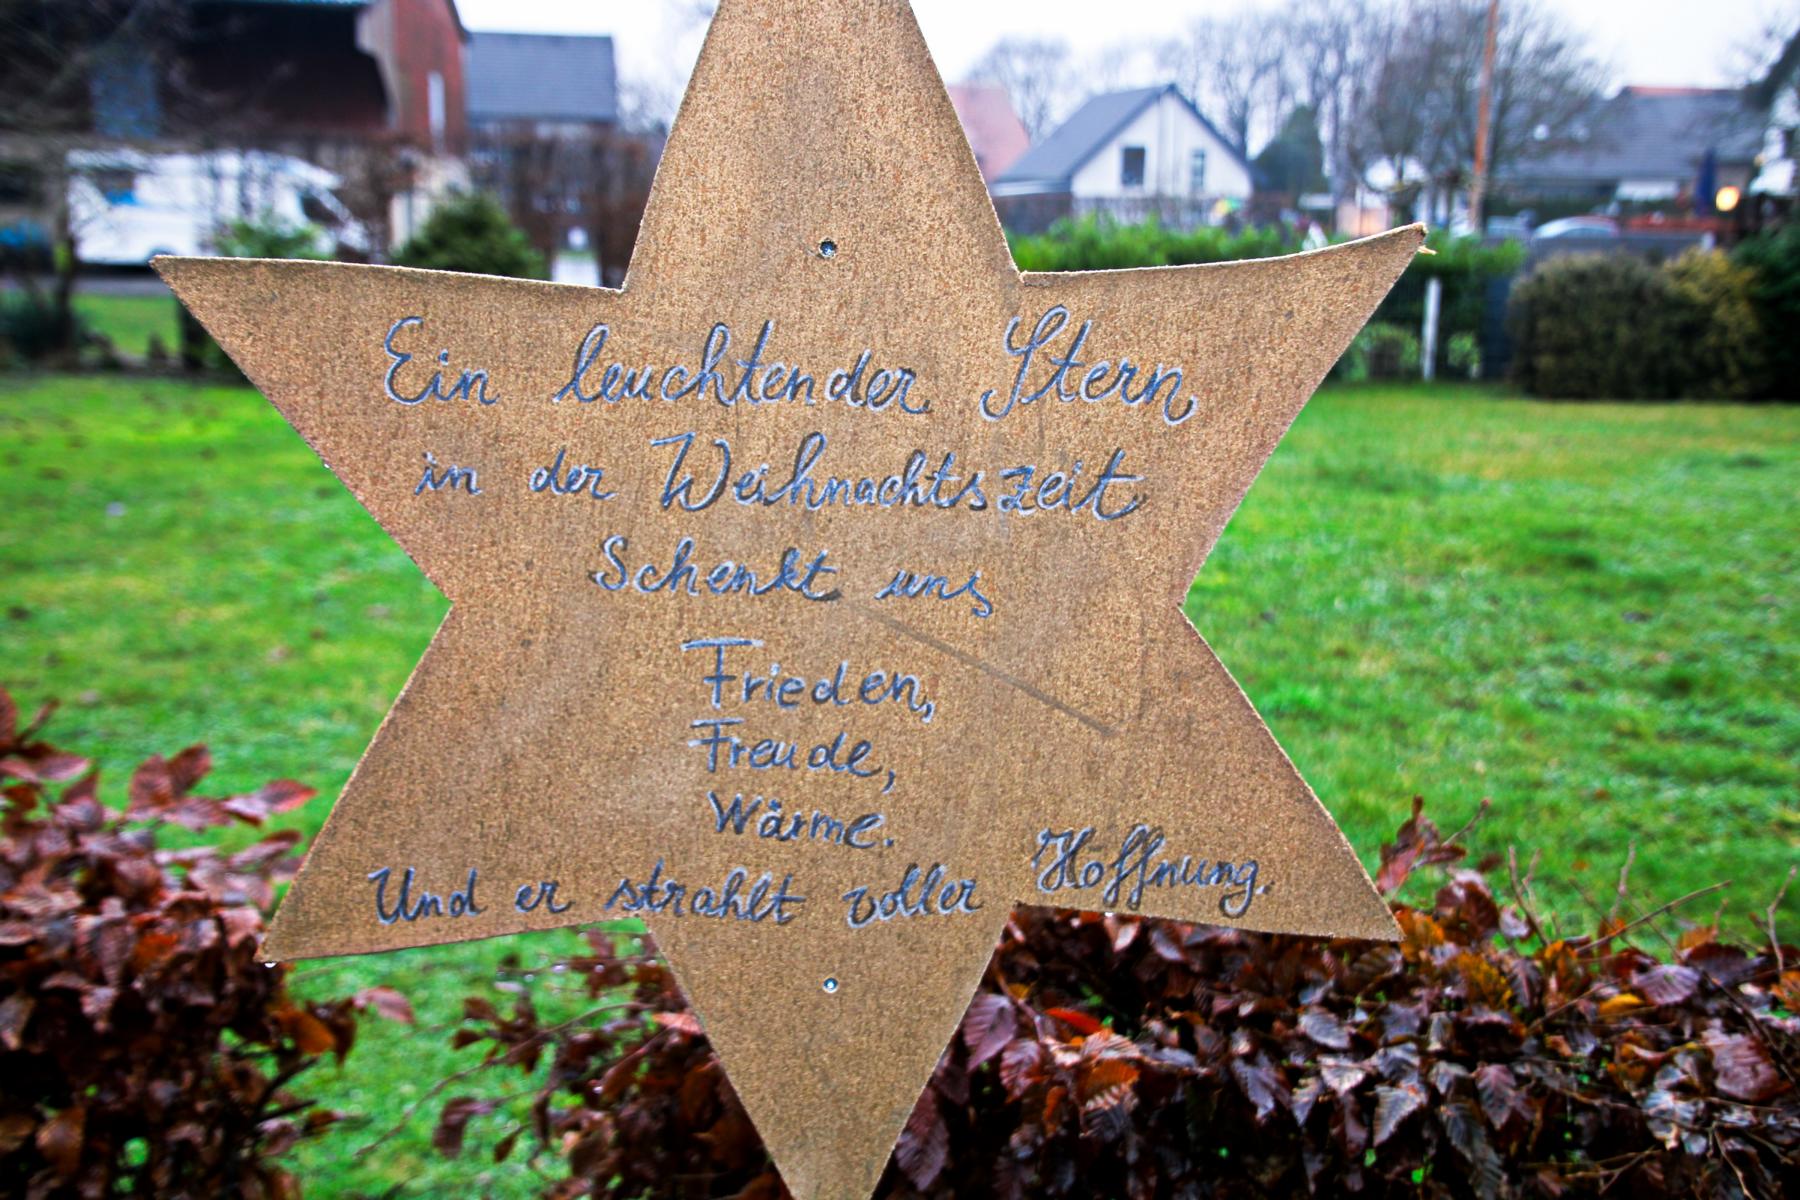 Ein leuchtender Stern
in der Weihnachtszeit
Schenkt uns
Frieden,
Freude,
Wärme.
Und er strahlt voller Hoffnung.